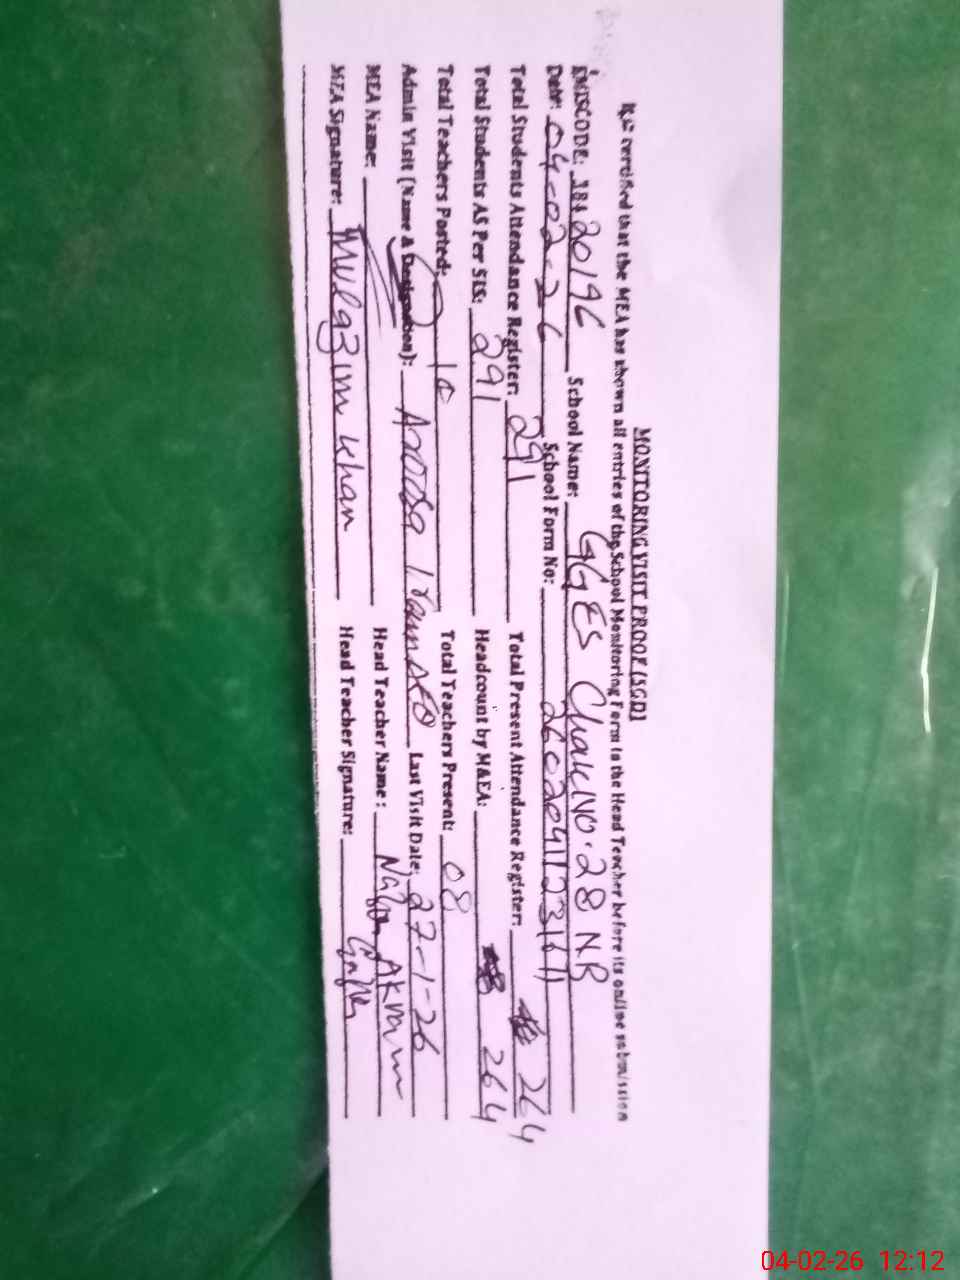 MONITORING VISIT PROOF (SGD)
It is certified that the MEA has shown all entries of the School Monitoring Form to the Head Teacher before its online submission
EMISCODE: 38420196 School Name: GGES Chak NO. 28 NB
Date: 04-02-26 School Form No: 26020411231611
Total Students Attendance Register: 291 Total Present Attendance Register: 264
Total Students AS Per SIS: 291 Headcount by M&EA: 264
Total Teachers Posted: 10 Total Teachers Present: 08
Admin Visit (Name & Designation): Aroosa Iram AEO Last Visit Date: 27-1-26
MEA Name: Head Teacher Name: Akram
MEA Signature: Mulazim Khan Head Teacher Signature:
04-02-26 12:12